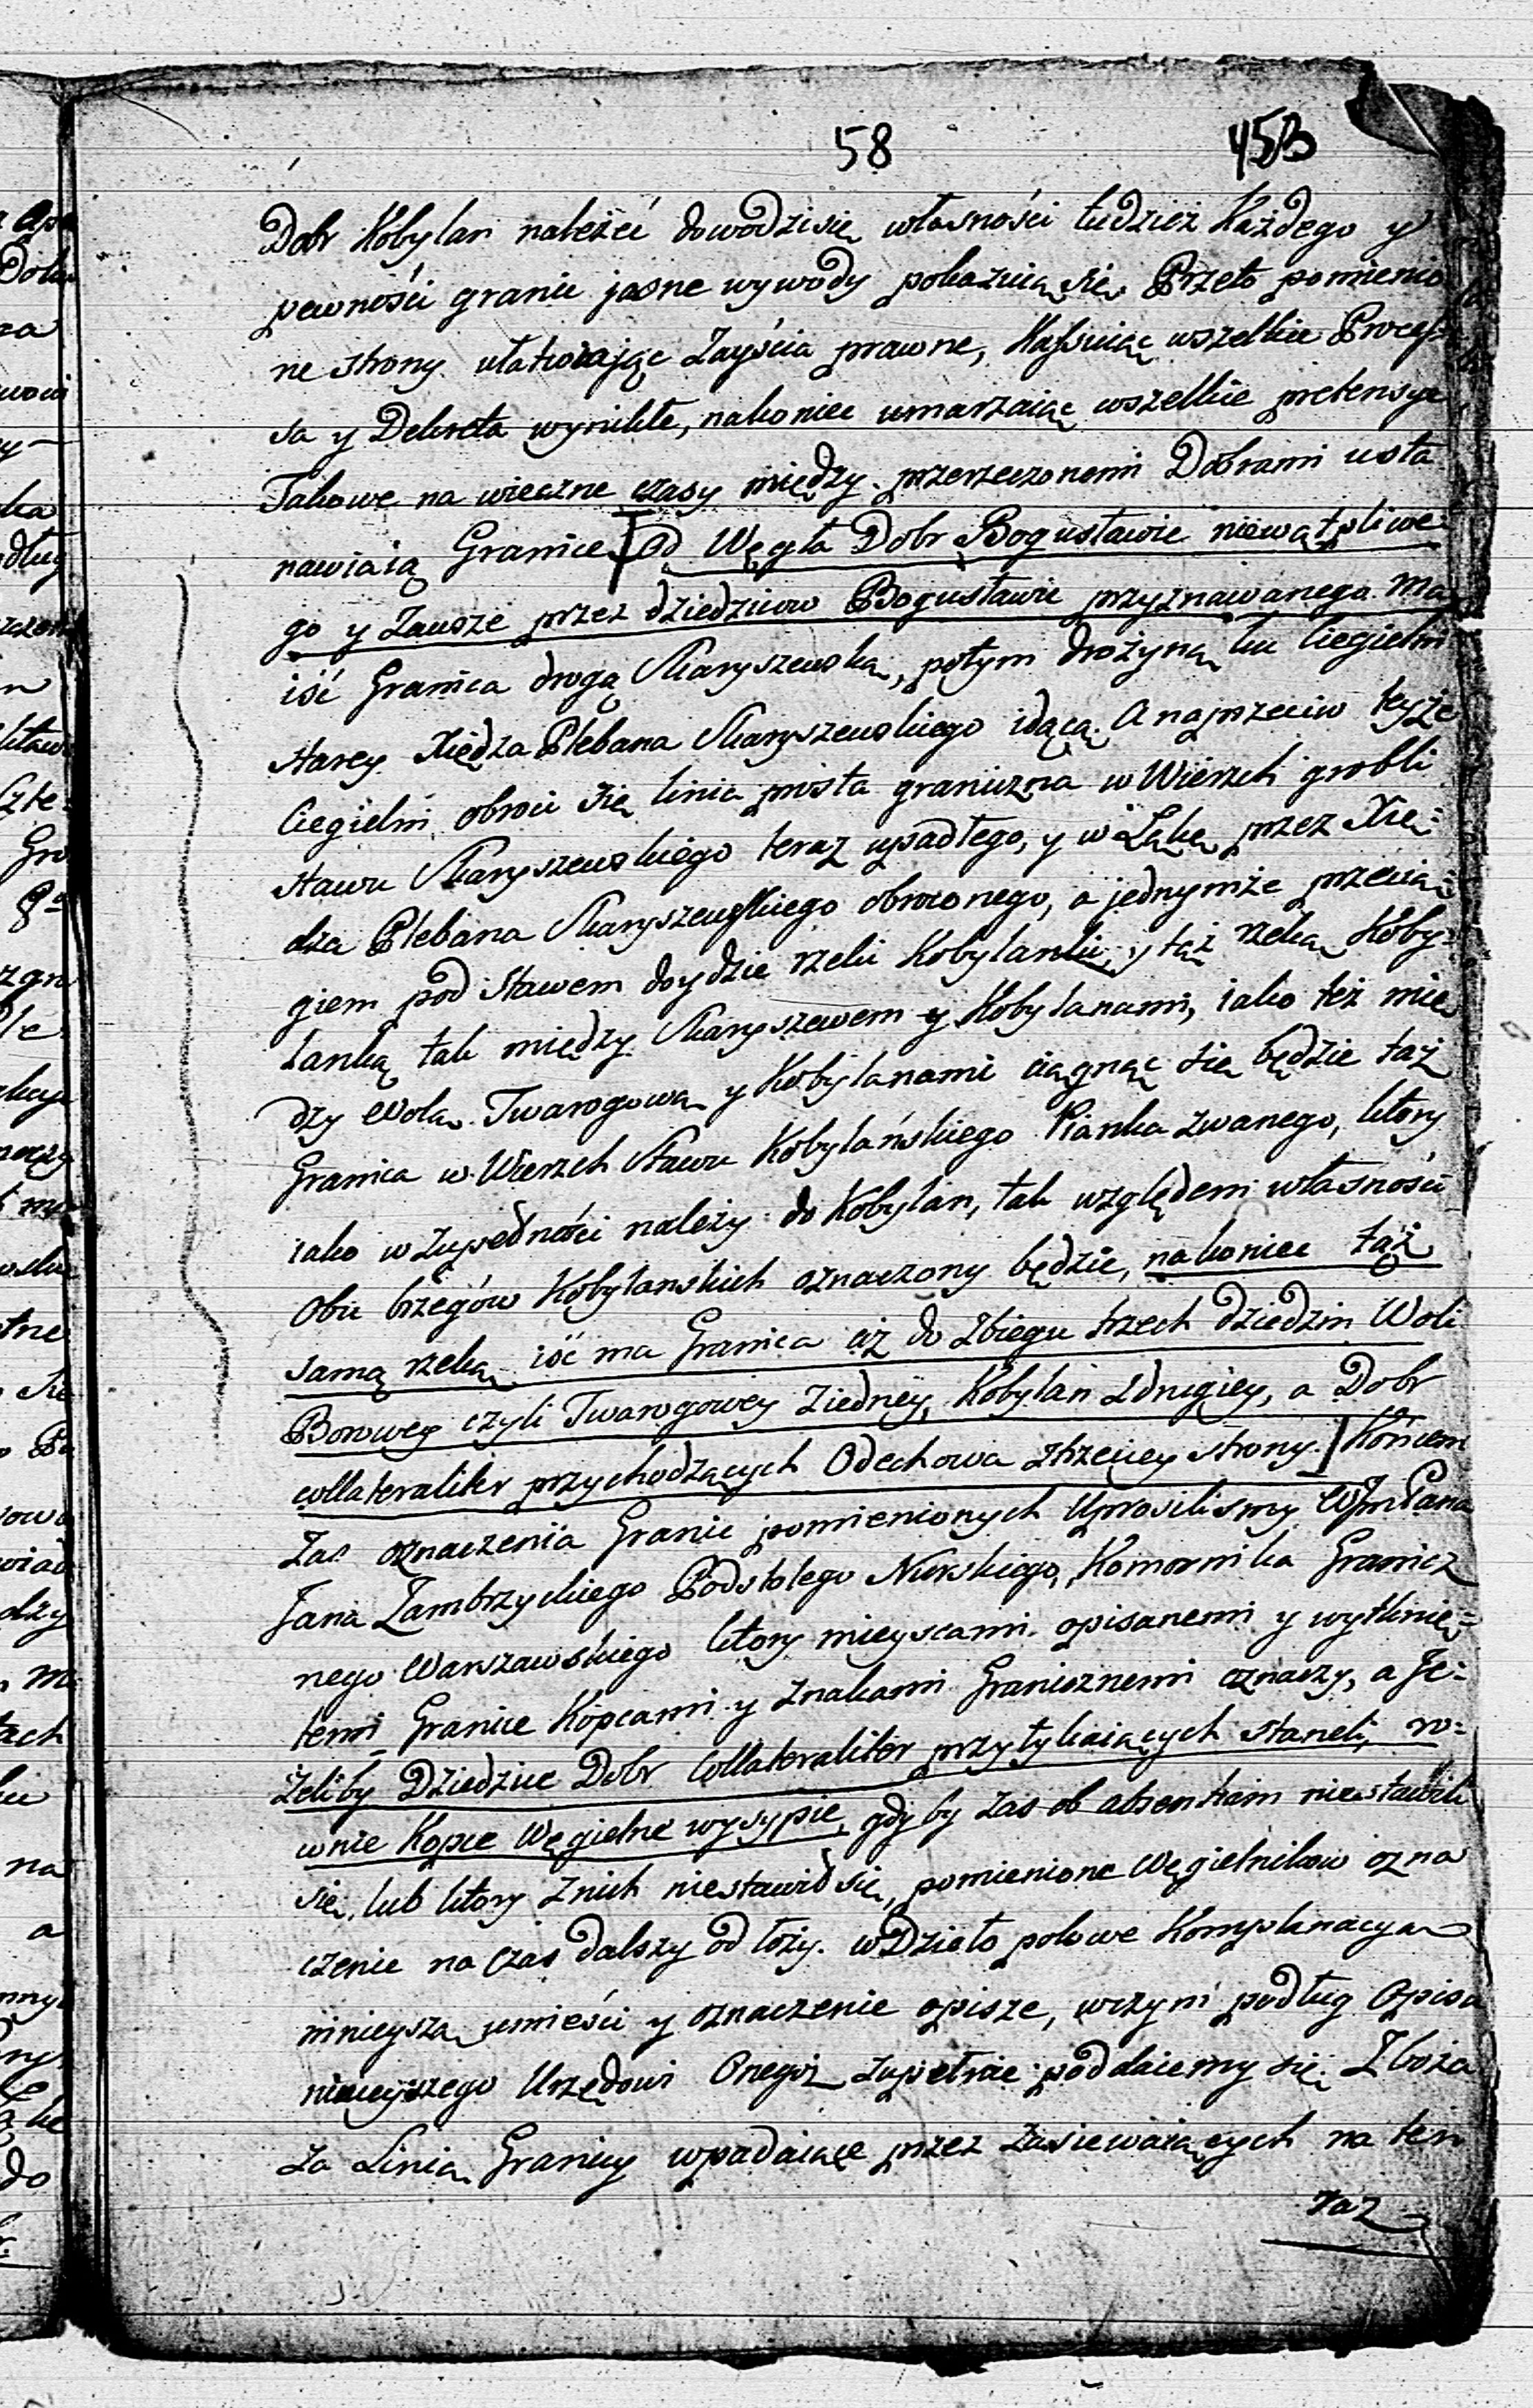 58 45B
Dobr Kobylan należeć dowodzi się własności tudzież Każdego y
pewności granic jasne wywody pokazuią się. Przeto pomienio
ne strony ułatwiając Zayścia prawne, Kassuiąc wszelkie Process=
sa y Dekreta wynikłe, nakoniec umarzaiąc wszelkie pretensye
Takowe na wieczne czasy między przerzeczonemi Dobrami usta
nawiaią Granice [Od Węgła Dobr Bogusławic niewątpliwe
go y Zawsze przez dziedziców Bogusławic przyznawanego. ma
iść Granica drogą Skaryszewską, potym drożyną ku Cegielni
starey Xiędza Plebana Skaryszewskiego idącą. A naprzeciw teyże
Cegielni obroci się linia prosta graniczna w Wierzch grobli
stawu Skaryszewskiego teraz upadłego, y w Łąkę przez Xię=
dza Plebana Skaryszewskiego obroconego, a jednymże przecią
giem pod stawem doydzie rzeki Kobylanki, y tąż rzeką Koby=
lanką tak między Skaryszewem y Kobylanami, iako też mię
dzy Wolą Twarogową y Kobylanami ciągnąć się będzie taż
Granica w Wierzch Stawu Kobylańskiego Pianka zwanego, ktory
iako w Zupełności należy do Kobylan, tak względem własności
Obu brzegów Kobylanskich oznaczony będzie, nakoniec tąż
samą rzeką iść ma Granica aż do Zbiegu trzech dziedzin Woli
Borowey czyli Twarogowey Ziedney, Kobylan Zdrugiey, a Dobr
collateraliter przychodzących Odechowa ztrzeciey strony.] Końcem
Zas oznaczenia Granic pomienionych Uprosilismy WJmPana
Jana Zambrzyckiego Podstolego Nurskiego, Komornika Granicz
nego Warszawskiego ktory mieyscami opisanemi y wytknię=
temi Granice Kopcami y Znakami Granicznemi oznaczy, a Je=
żeliby Dziedzice Dobr Collateraliter przytykaiących staneli, ro=
wnie Kopce Węgielne wysypie, gdyby Zas ob absentiam niestawili
się, lub ktory Znich niestawił się, pomienione Węgielnikow ozna
czenie na czas dalszy odłoży. w Dzieło polowe Komplanacyą
ninieyszą umieści y oznaczenie opisze, uczyni podług Opisu
ninieyszego Urzędowi Onegoż zupełnie poddaiemy się. Zboża
Za Linią Granicy wpadaiące przez Zasiewaiących na ten
raz